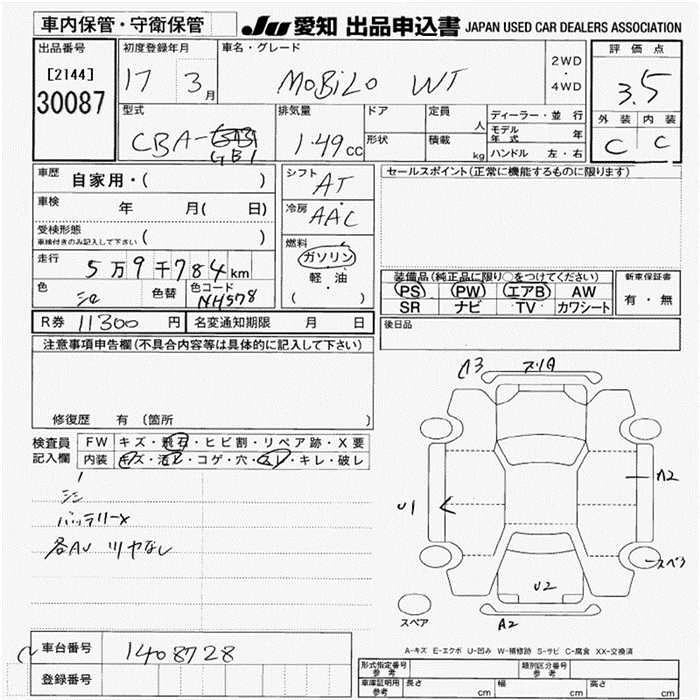 車内保管・守衛保管
JU 愛知 出品申込書 JAPAN USED CAR DEALERS ASSOCIATION
出品番号 初度登録年月 車名・グレード 評価点
[2144] 30087
17 3月 MOBiLO WT 2WD・4WD 3.5
型式 排気量 ドア 定員 人 ディーラー・並行 外装 内装
CBA-GB1 1.49cc 形状 積載 kg モデル年式 年 C C
ハンドル 左・右
車歴 自家用・( ) シフト AT セールスポイント(正常に機能するものに限ります)
車検 年 月( 日) 冷房 AAC
受検形態 車検付きのみ記入して下さい ( )
燃料 ガソリン 軽・油 ( )
走行 5万9千784km
装備品(純正品に限り○をつけてください) 新車保証書
色 色替 色コード NH578
PS PW エアB AW 有・無
SR ナビ TV カワシート
R券 11300円 名変通知期限 月 日
後日品
注意事項申告欄(不具合内容等は具体的に記入して下さい)
修復歴 有 〔箇所 〕
検査員記入欄 FW キズ・飛石・ヒビ割・リペア跡・X要
内装 キズ・汚レ・コゲ・穴・スレ・キレ・破レ
バッテリーX
各AU ツヤなし
A3 スリキ
U1 A2
U2
スペア A2
A-キズ E-エクボ U-凹み W-補修跡 S-サビ C-腐食 XX-交換済
車台番号 1408728
登録番号
形式指定番号 参考 類別区分番号 参考
車庫証明用 参考 長さ cm 幅 cm 高さ cm